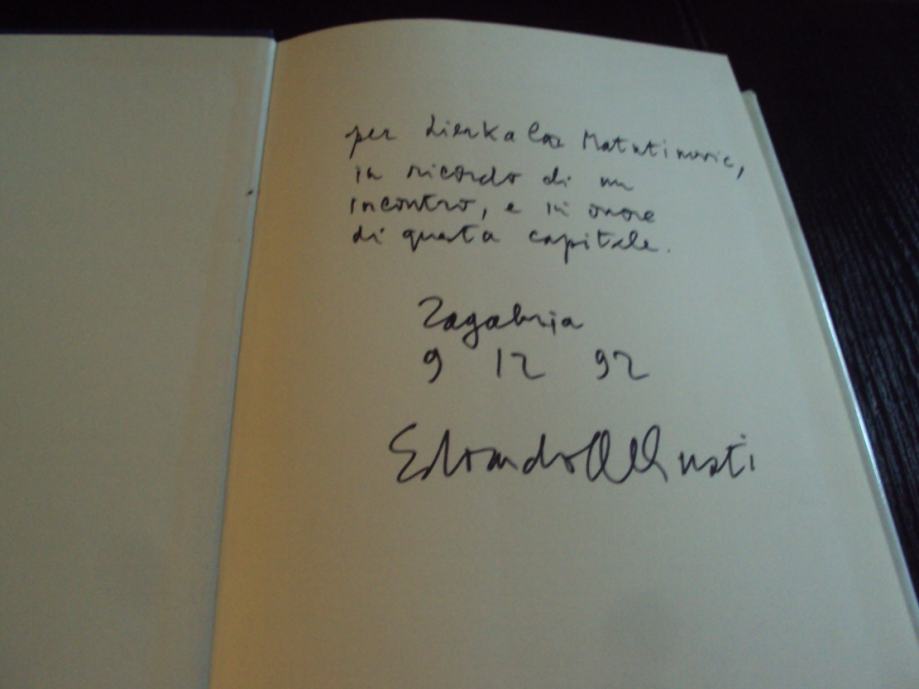 per Lierka Matutinovic,
in ricordo di un
incontro, e in onore
di questa capitale.
Zagabria
9 12 92
Edoardo